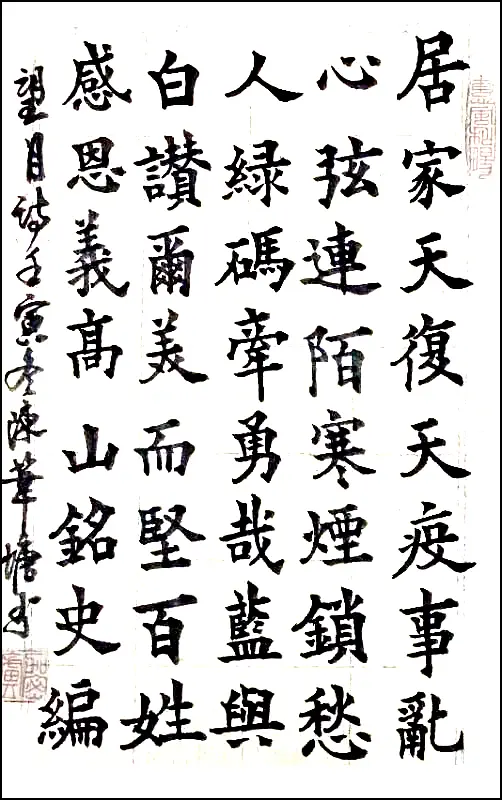 居家天復天疫事亂
心弦連陌寒煙鎖愁
人綠碼牽勇哉藍與
白讚爾美而堅百姓
感恩義高山銘史編
望月詩壬寅冬陳華塘书